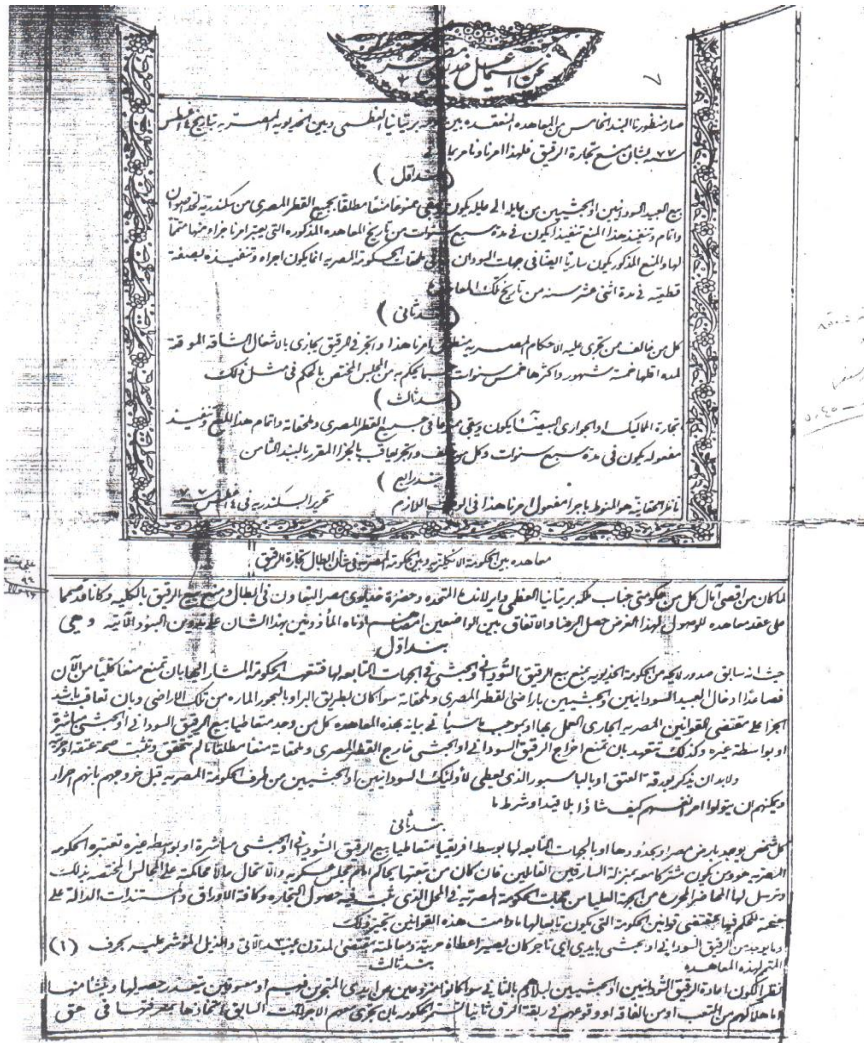 نحن اسماعيل خديوي مصر
صار منظورنا البند الخامس من المعاهده المنعقده بين بريتانيا العظمى وبين الخديويه المصريه بتاريخ ٤ اغسطس
سنه ٧٧ بشان منع تجارة الرقيق فلهذا امرنا ونامر بما
(بند اول)
بيع العبيد السودانيين او الحبشيين من عايله الى عايله يكون ويبقى ممنوعا منعا مطلقا بجميع القطر المصرى من سكندرية لحد اصوان
واتمام وتنفيذ هذا المنع تنفيذا يكون فى مدة سبع سنوات من تاريخ المعاهده المذكوره التى يعتبر امرنا هذا جزء منها متمما
لها والمنع المذكور يكون ساريا ايضا فى جهات السودان ملحقات الحكومة المصريه انما يكون اجراه وتنفيذه بصفة
قطعية فى مدة اثنى عشر سنه من تاريخ تلك المعاهده
(بند ثانى)
كل من خالف ممن تجرى عليه الاحكام المصريه منطوق امرنا هذا واتجر فى الرقيق يجازى بالاشغال الشاقة الموقتة
لمده اقلها خمسة شهور واكثرها خمس سنوات حسبما يحكم به من المجلس المختص بالحكم فى مثل ذلك
(بند ثالث)
تجارة المماليك او الجوارى البيض يكون ويبقى ممنوعا فى جميع القطر المصرى وملحقاته واتمام هذا المنع وتنفيذ
مفعوله يكون فى مدة سبع سنوات وكل من خالف واتجر يعاقب بالجزا المقرر بالبند الثانى
(بند رابع)
ناظر الحقانية هو المنوط باجرا مفعول امرنا هذا فى الوقت اللازم تحريرا بسكندريه فى ٤ اغسطس ٧٧
معاهده بين الحكومة الانكليزيه وبين الحكومة المصريه فى شأن ابطال تجارة الرقيق
لما كان من اقصى آمال كل من حكومتى جناب ملكة بريتانيا العظمى وايرلاندا المتحده وحضرة خديوى مصر التعاون فى ابطال ومنع بيع الرقيق بالكليه وكانا قد صمما
على عقد معاهده للوصول لهذا الغرض حصل الرضا والاتفاق بين الواضعين اسماهم ادناه المأذونين بهذا الشان على تدوين البنود الآتية وهى
بند اول
حيث انه سابق صدور لايحه من الحكومة الخديويه بمنع بيع الرقيق السودانى او الحبشى فى الجهات التابعه لها فتتعهد الحكومة المشار اليها بان تمنع منعا كليا من الآن
فصاعدا ادخال العبيد السودانيين او الحبشيين باراضى القطر المصرى وملحقاته سوا كان بطريق البر او البحور الماره من تلك الاراضى وبان تعاقب باشد
الجزا على مقتضى القوانين المصريه الجارى العمل بها او بموجب ما سيأتى بيانه بهذه المعاهده كل من وجد متعاطيا بيع الرقيق السودانى او الحبشى مباشرة
او بواسطة غيره وكذلك تتعهد بان تمنع اخراج الرقيق السودانى او الحبشى خارج القطر المصرى وملحقاته منعا مطلقا ما لم تتحقق وتثبت صحة عتقه او حريته
ولابد ان يذكر بورقة العتق او بالباسبور الذى يعطى لأولئك السودانيين او الحبشيين من طرف الحكومة المصريه قبل خروجهم بانهم احرار
ويمكنهم ان يتولوا امر انفسهم كيف شاؤا بلا قيد او شرط ما
بند ثانى
كل شخص يوجد بارض مصر او بحدودها او بالجهات التابعه لها بوسط افريقيا متعاطيا بيع الرقيق السودانى او الحبشى مباشرة او بواسطه غيره تعتبره الحكومه
المصريه هو ومن يكون مشتركا معه بمنزلة السارقين القاتلين فان كان من رعيتها يحاكم امام مجلس عسكرى والا تحال حالا محاكمته على المجالس المختصه بذلك
وترسل لها المحاضر المحرره من الجهة العليا من جهات الحكومة المصريه فى المحل الذى ثبت فيه حصول التجاره وكافة الاوراق والمستندات الدالة على
جنحته للحكم فيها بمقتضى قوانين الحكومة التى يكون تابعا لها ما دامت هذه القوانين تجيز ذلك
وما يوجد من الرقيق السودانى او الحبشى بايدى اى تاجر كان يصير اعطائه حريته ومعاملته بمقتضى المدون ببند ٣ الآتى والذيل المؤشر عليه بحرف (١)
المتمم لهذه المعاهده
بند ثالث
نظرا لكون اعادة الرقيق السودانيين او الحبشيين لبلادهم بالثانى سوا كانوا منزوعين من ايدى المتجرين فيهم او معتوقين يتعذر حصولها وينشأ منها
اما هلاكهم من التعب او من الفاقه او وقوعهم فى ربقة الرق ثانيا تستمر الحكومه بان تجرى معهم الاجراآت السابق اتخاذها بمعرفتها فى حق